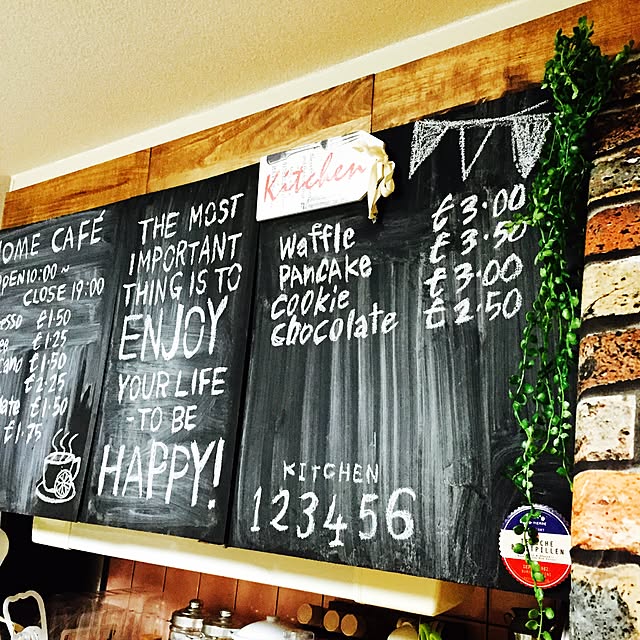 HOME CAFÉ
OPEN 10:00~
CLOSE 19:00
£1.50
£1.25
£1.50
£2.25
£1.50
£1.75
THE MOST
IMPORTANT
THING IS TO
ENJOY
YOUR LIFE
-TO BE
HAPPY!
Kitchen
Waffle £3.00
PANCAKE £3.50
COOKiE £3.00
chocolate £2.50
KiTCHEN
123456